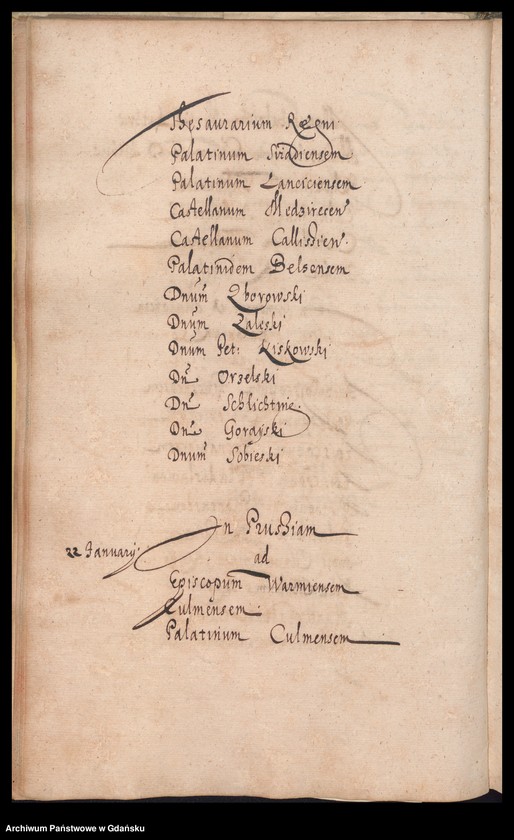 Thesaurarium Regni
Palatinum Siradiensem
Palatinum Lanciciensem
Castellanum Medzirecen
Castellanum Callissien.
Palatinidem Belsensem
Dnum Zborowski
Dnum Zaleski
Dnum Pet: Kiskowski
Dn Orzelski
Dn Schlichtin
Dn Gorajski
Dnum Sobieski
In Prussiam
22 January.
ad
Episcopum Warmiensem
Culmensem.
Palatinum Culmensem
Archiwum Państwowe w Gdańsku